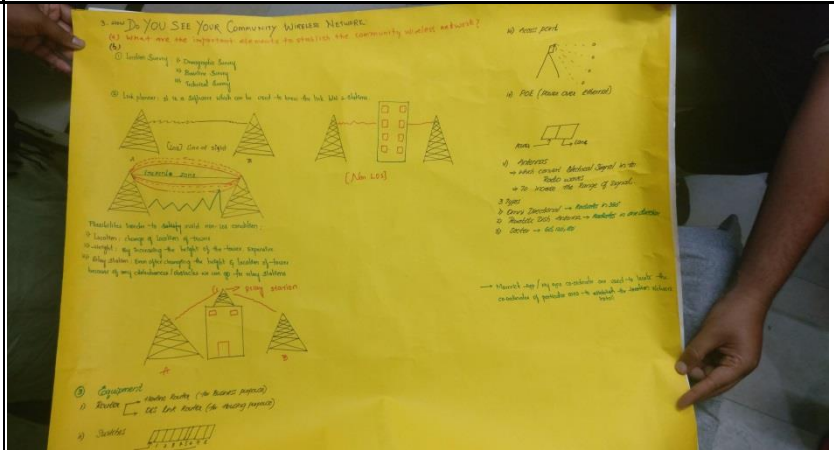 3. HOW DO YOU SEE YOUR COMMUNITY WIRELESS NETWORK
(a) What are the important elements to stablish the community wireless network?
(b)
① Location Survey i) Demographic Survey
ii) Baseline Survey
iii) Technical Survey
② Link planner: it is a software which can be used to know the link b/w 2 stations.
(LOS) Line of sight
A B
Fresnel zone
[Non LOS]
Possibilities avoid non-los condition
i) Location: change of location of tower
ii) Height: By increasing the height of the tower
iii) Relay Station: Even after changing the height & location of tower
because of any disturbances/obstacles we can go for relay stations
Relay station
A B
③ Equipment
i) Router (for Business purpose)
Link Router (for housing purpose)
ii) Switches
iii) Access point
iv) POE (Power over Ethernet)
v) Antennas
→ which convert Electrical Signal in to
Radio waves
→ To increase the Range of Signal.
3 Types
i) Omni Directional → Radiates in 360
ii) Dish Antenna → Radiates in one direction
iii) Sector →
co-ordinate are used to the
co-ordinates of particular area to establish the